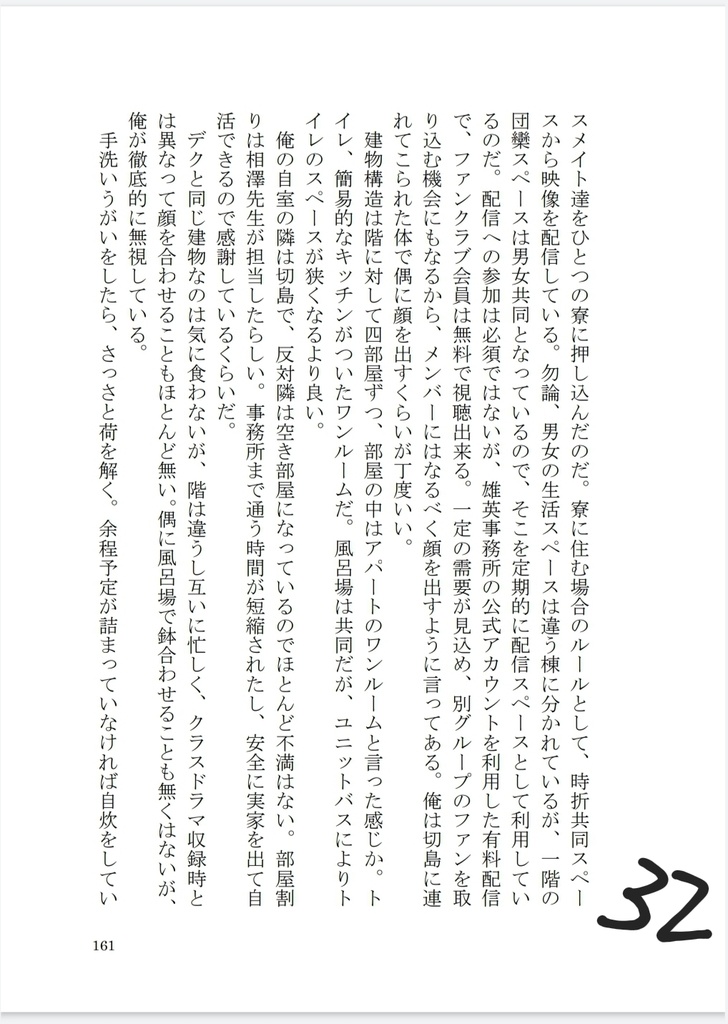 スメイト達をひとつの寮に押し込んだのだ。寮に住む場合のルールとして、時折共同スペー
スから映像を配信している。勿論、男女の生活スペースは違う棟に分かれているが、一階の
団欒スペースは男女共同となっているので、そこを定期的に配信スペースとして利用してい
るのだ。配信への参加は必須ではないが、雄英事務所の公式アカウントを利用した有料配信
で、ファンクラブ会員は無料で視聴出来る。一定の需要が見込め、別グループのファンを取
り込む機会にもなるから、メンバーにはなるべく顔を出すように言ってある。俺は切島に連
れてこられた体で偶に顔を出すくらいが丁度いい。
建物構造は階に対して四部屋ずつ、部屋の中はアパートのワンルームと言った感じか。ト
イレ、簡易的なキッチンがついたワンルームだ。風呂場は共同だが、ユニットバスによりト
イレのスペースが狭くなるより良い。
俺の自室の隣は切島で、反対隣は空き部屋になっているのでほとんど不満はない。部屋割
りは相澤先生が担当したらしい。事務所まで通う時間が短縮されたし、安全に実家を出て自
活できるので感謝しているくらいだ。
デクと同じ建物なのは気に食わないが、階は違うし互いに忙しく、クラスドラマ収録時と
は異なって顔を合わせることもほとんど無い。偶に風呂場で鉢合わせることも無くはないが、
俺が徹底的に無視している。
手洗いうがいをしたら、さっさと荷を解く。余程予定が詰まっていなければ自炊をしてい
161
32